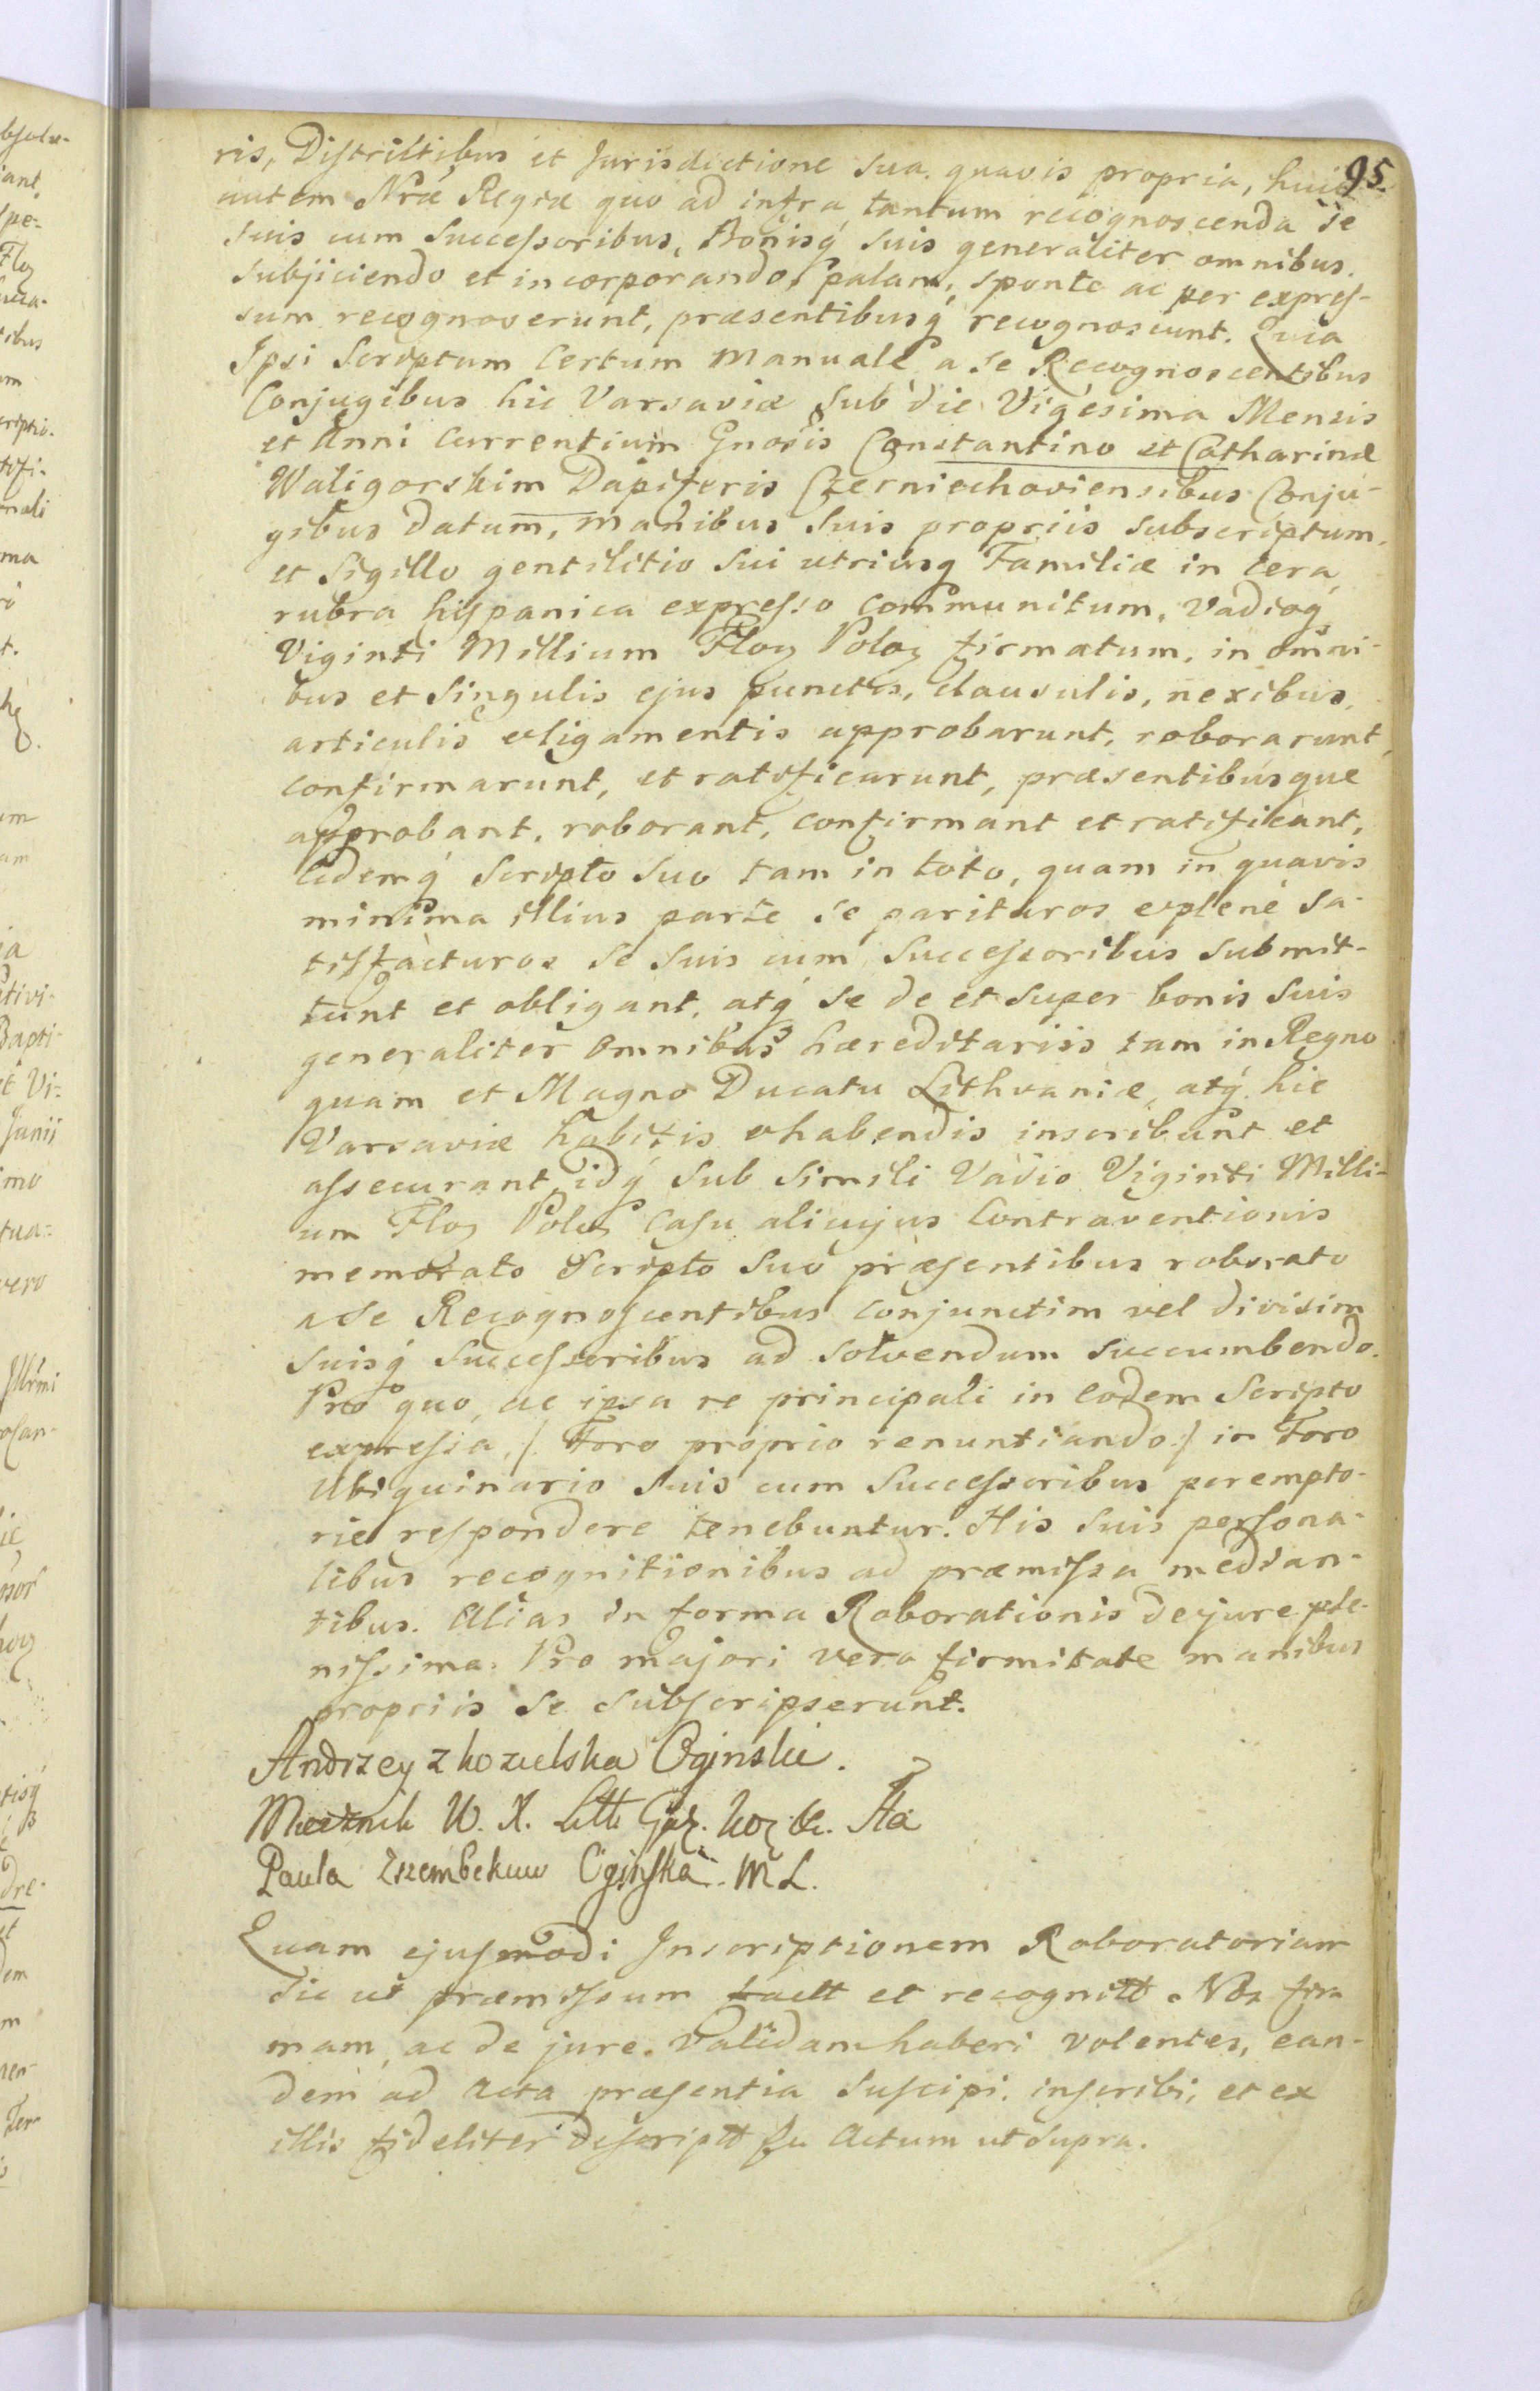 95.
ris, Districtibus et Jurisdictione sua quavis propria, huic
autem Nrae Regiae quo ad infra tantum recognoscenda se
suis cum Successoribus, Bonisq́ suis generaliter omnibus.
subjiciendo et incorporando, palam, sponte ac per expres-
sum recognoverunt, praesentibusq́ recognoscunt. Quia
Ipsi Scriptum certum manuale a se Recognoscentibus
Conjugibus hic Varsaviae sub die Vigesima Mensis
et Anni currentium Gnosis Constantino et Catharinae
Waligorskim Dapiferis Czerniechoviensibus Conju-
gibus datum, manibus suis propriis subscriptum,
et Sigillo gentilitio sui utriusq Familiae in cera
rubra hispanica expresso communitum, vadioq́
Viginti Millium Floꝝ Poloꝝ firmatum, in omni-
bus et singulis ejus punctis, clausulis, nexibus,
articulis et ligamentis approbarunt, roborarunt,
confirmarunt, et ratificarunt, praesentibusque
approbant, roborant, confirmant et ratificant,
Eidemq́ Scripto suo tam in toto, quam in quavis
minima illius parte se parituros et plenè sa-
tisfacturos se suis cum Successoribus submit-
tunt et obligant, atq́ se de et super bonis suis
generaliter omnibus haereditariis tam in Regno
quam et Magno Ducatu Lithvaniae, atq́ hic
Varsaviae habitis et habendis inscribunt et
assecurant, idq́ sub simili Vadio Viginti Milli-
um Floꝝ Poloꝝ casu alicujus Contraventionis
memorato Scripto suo praesentibus roborato
a se Recognoscentibus conjunctim vel divisim
suisq́ Successoribus ad solvendum succumbendo.
Pro quo, ac ipsa re principali in eodem Scripto
expressa, /. Foro proprio renuntiando ./ in Foro
Ubiquinario suis cum Successoribus perempto-
rie respondere tenebuntur. His suis persona-
libus recognitionibus ad praemissa median-
tibus. Alias in forma Roborationis de jure ple-
nissima. Pro majori vero firmitate manibus
propriis se subscripserunt.
Andrzey z Kozielska Oginski.
Miecznik W. X. Litt
Paula Szembekuw Oginska. M L.
Quam ejusmodi Inscriptionem Roboratoriam
sic ut praemissum factt et recognitt Nos fir
mam, ac de jure validam haberi volentes, ean-
dem ad Acta praesentia suscipi, inscribi, et ex
illis fideliter descriptt Actum ut supra.